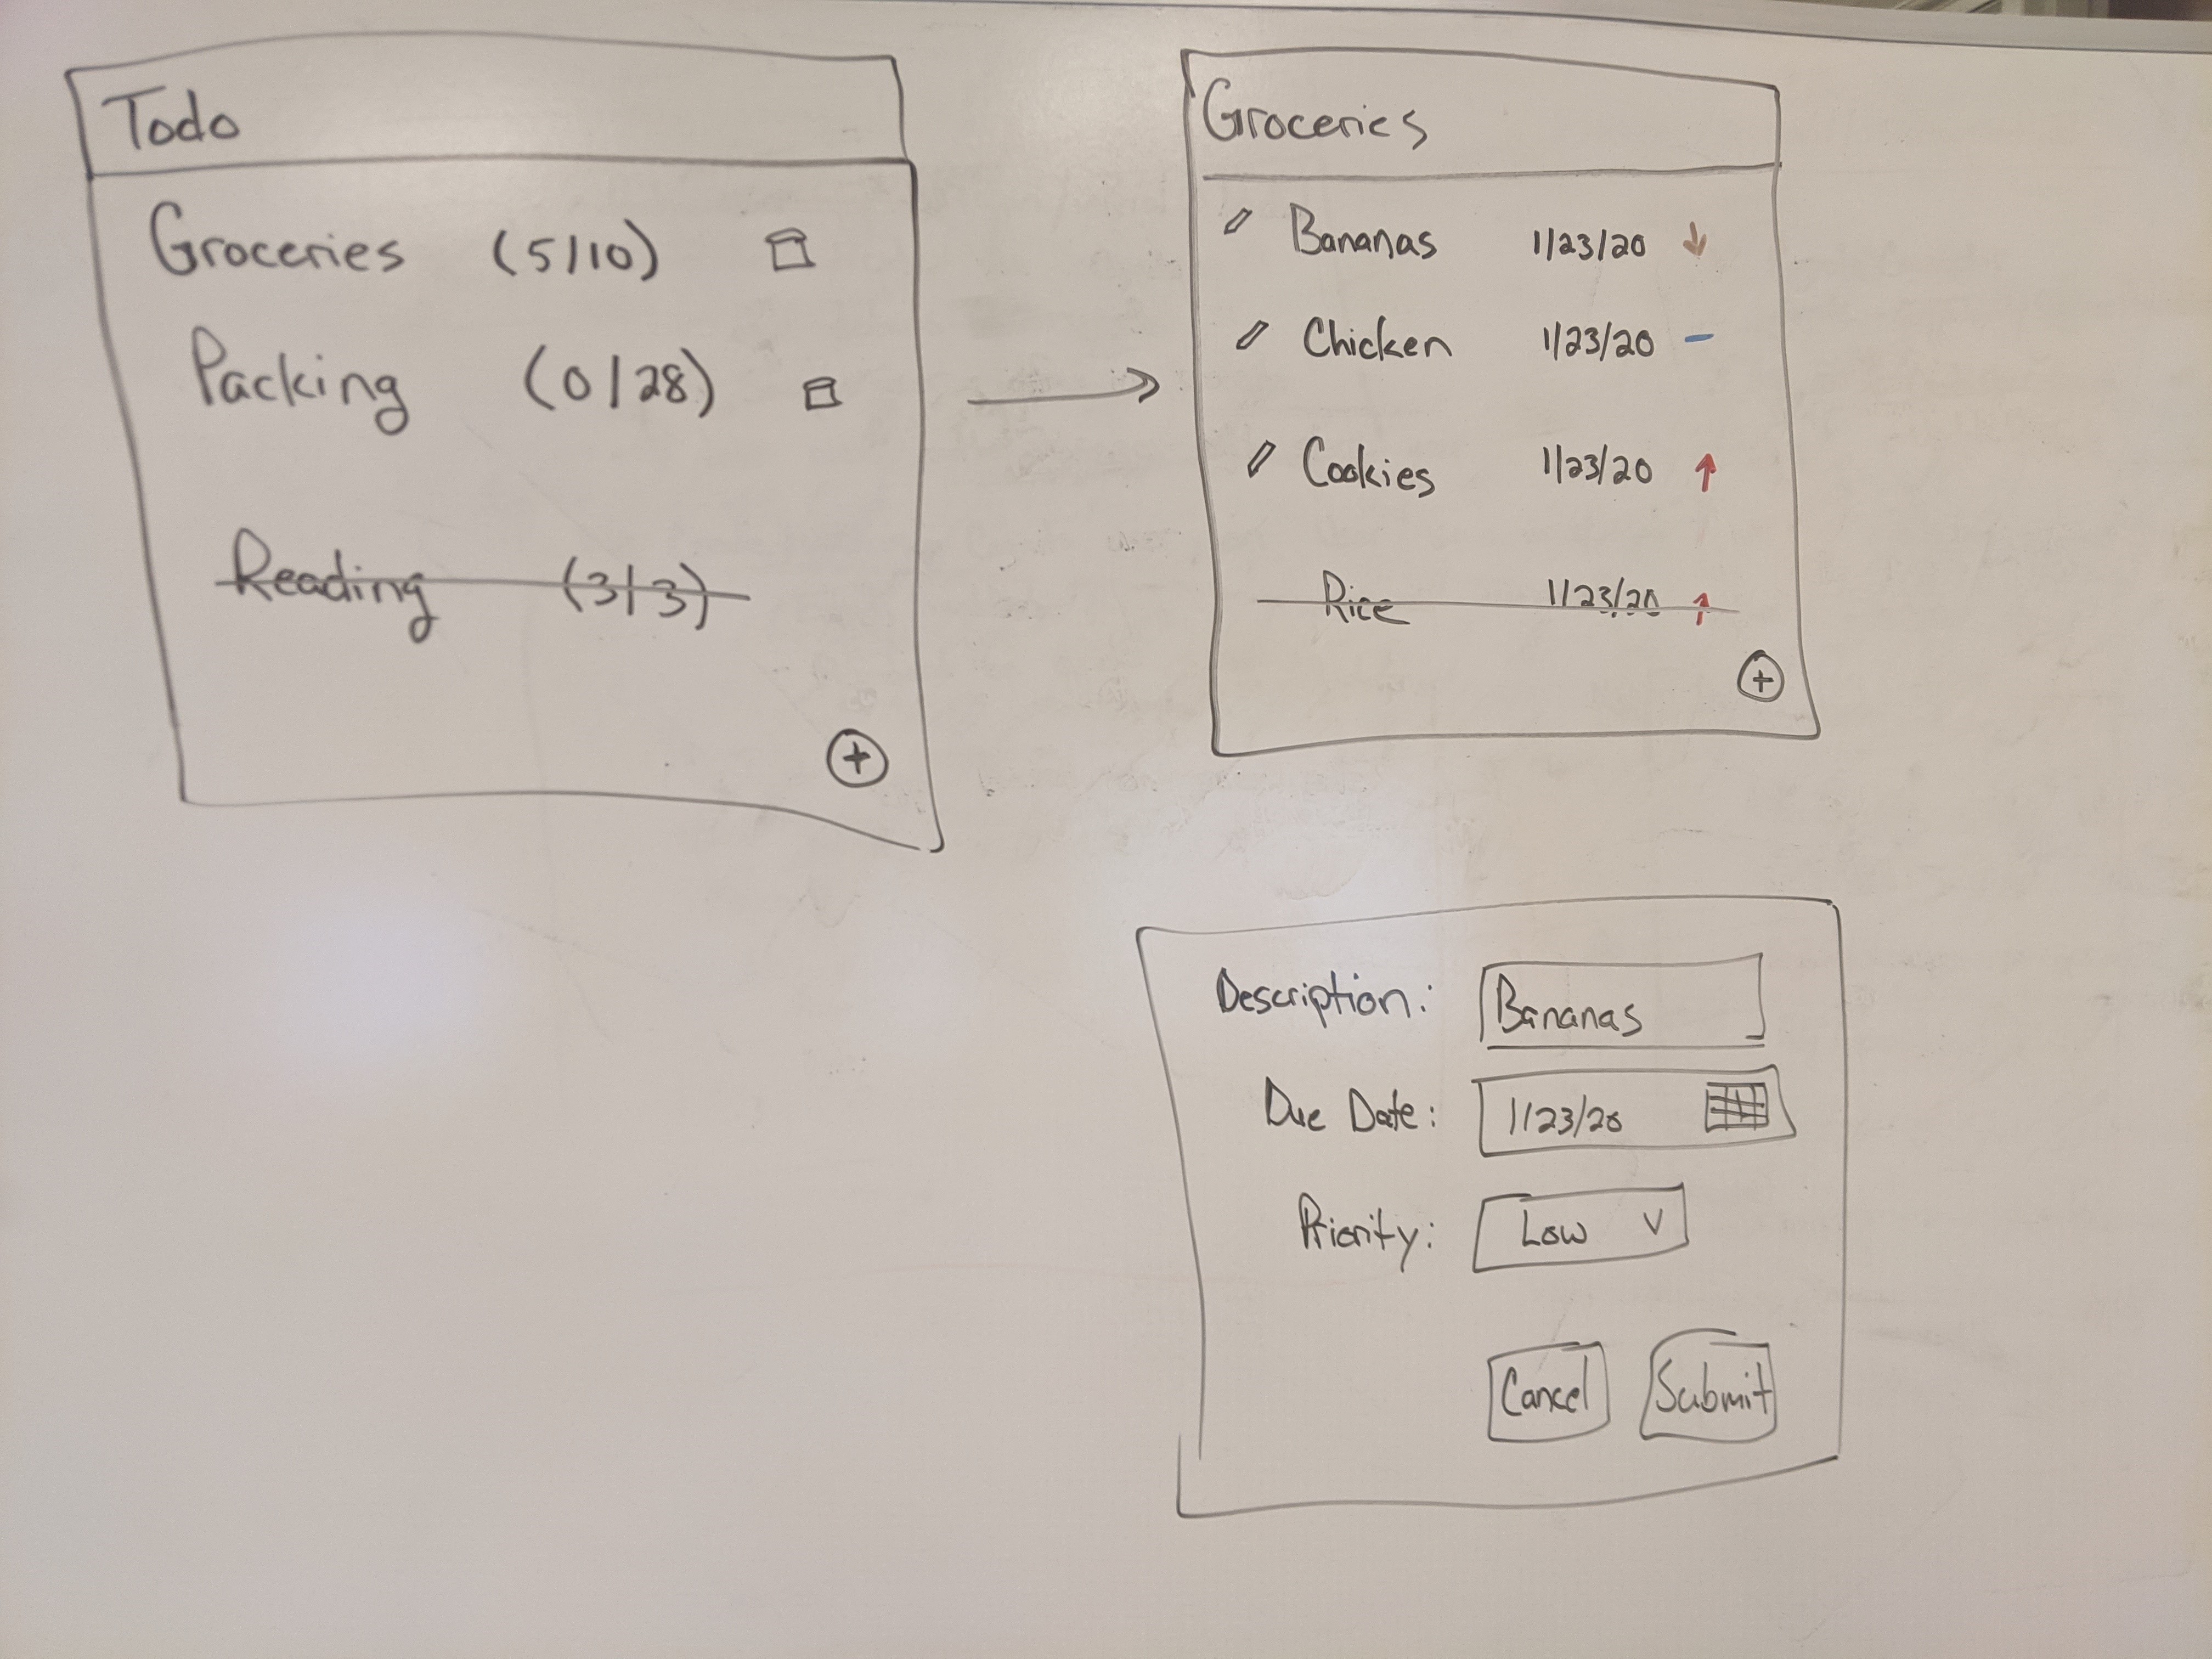 Todo
Groceries (5/10)
Packing (0/28)
Reading (3/3)
Groceries
Bananas 1/23/20
Chicken 1/23/20
Cookies 1/23/20
Rice 1/23/20
Description: Bananas
Due Date: 1/23/20
Priority: Low
Cancel Submit